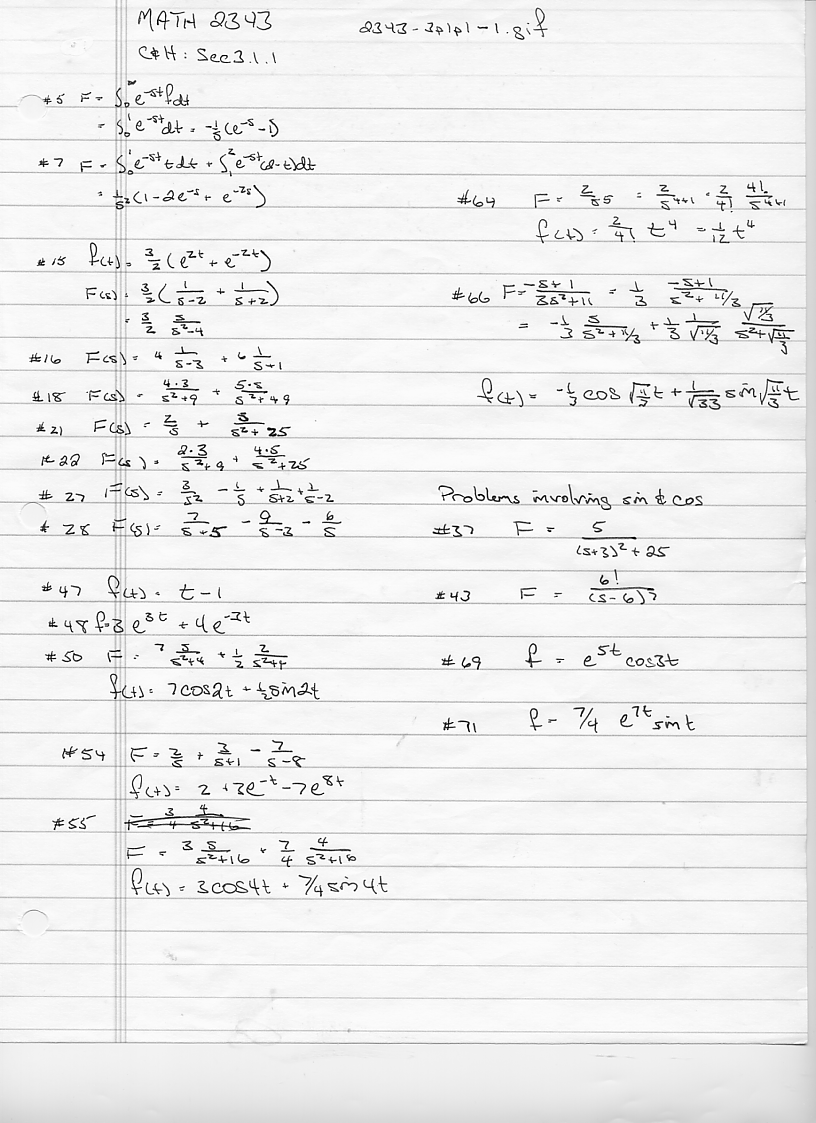 MATH 2343
2343-3p1p1-1.gif
C&H: Sec 3.1.1
#5 F = ∫₀^∞ e^-st f dt
= ∫₀¹ e^-st dt = -1/s (e^-s - 1)
#7 F = ∫₀¹ e^-st t dt + ∫₁² e^-st (2-t) dt
= 1/s² (1 - 2e^-s + e^-2s)
#15 f(t) = 3/2 (e^2t + e^-2t)
F(s) = 3/2 (1/(s-2) + 1/(s+2))
= 3/2 s/(s²-4)
#16 F(s) = 4 1/(s-3) + 6 1/(s+1)
#18 F(s) = 4·3/(s²+9) + 5·s/(s²+49)
#21 F(s) = 2/s + s/(s²+25)
#22 F(s) = 2·3/(s²+9) + 4·s/(s²+25)
#27 F(s) = 3/s² - 1/s + 1/(s+2) + 1/(s-2)
#28 F(s) = 7/(s+5) - 9/(s-3) - 6/s
#47 f(t) = t - 1
#48 f = 3 e^3t + 4e^-3t
#50 F = 7 s/(s²+4) + 1/2 2/(s²+4)
f(t) = 7 cos 2t + 1/2 sin 2t
#54 F = 2/s + 3/(s+1) - 7/(s-8)
f(t) = 2 + 3e^-t - 7e^8t
#55 F = 3/4 4/(s²+16)
F = 3 s/(s²+16) + 7/4 4/(s²+16)
f(t) = 3 cos 4t + 7/4 sin 4t
#64 F = 2/s^5 = 2/s^4+1 = 2/4! 4!/s^4+1
f(t) = 2/4! t^4 = 1/12 t^4
#66 F = (-s+1)/(3s²+11) = 1/3 (-s+1)/(s²+11/3)
= -1/3 s/(s²+11/3) + 1/3 1/√(11/3) √(11/3)/(s²+√(11/3))
f(t) = -1/3 cos √(11/3) t + 1/√33 sin √(11/3) t
Problems involving sin & cos
#37 F = 5/((s+3)²+25)
#43 F = 6!/(s-6)^7
#69 f = e^5t cos 3t
#71 f = 7/4 e^7t sin t